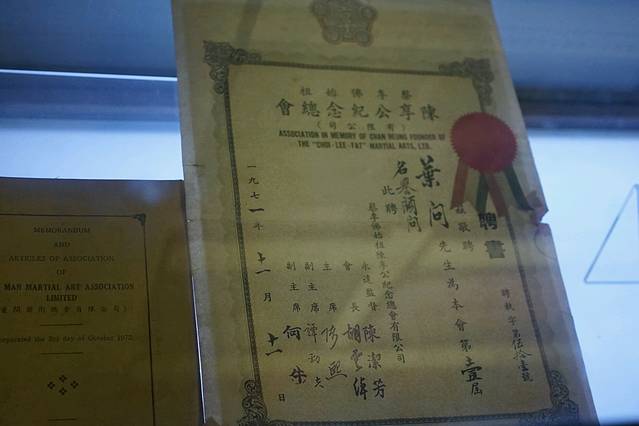 蔡李佛始祖
陳享公紀念總會
(有限公司)
ASSOCIATION IN MEMORY OF CHAN HEUNG FOUNDER OF
THE "CHOI-LEE-FAT" MARTIAL ARTS, LTD.
聘書
聘教字第伍拾壹號
敬聘
葉問
先生為本會第壹屆
名譽顧問
此聘
蔡李佛始祖陳享公紀念總會有限公司
永遠監督 陳潔芳
會長 胡雲綽
主席
副主席 譚
副主席 何柴
一九七一年十一月十一日
MEMORANDUM
AND
ARTICLES OF ASSOCIATION
OF
MAN MARTIAL ART ASSOCIATION
LIMITED
day of October 1972